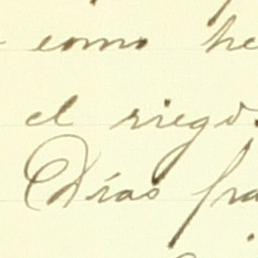 como he
el riego.
Días fra